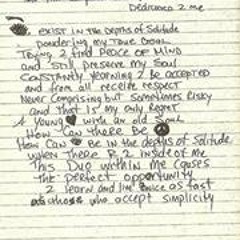 Dedicated 2 me
EXIST IN THE DEPTHS OF SOLITUDE
pondering my TRUE GOAL
TRYING 2 find PEACE OF MIND
and still preserve my SOUL
CONSTANTLY yearning 2 be accepted
and from all receive respect
Never Comprising but sometimes risky
and that is my only regret
A young ♥ with an old soul
How can there be ☮
How can I be in the depths of solitude
when there R 2 inside of me
This Duo within me causes
the perfect opportunity
2 learn and live twice as fast
as those who accept simplicity